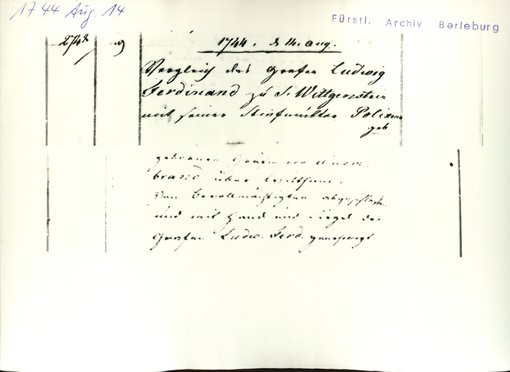 1744 Aug. 14
Fürstl. Archiv Berleburg
1744. d 14. Aug.
Vergleich des Grafen Ludwig
Ferdinand zu S. Wittgenstein
mit seiner Polixena
geb
gebornen Gräfin von
über
Von Bevollmächtigten
und mit Hand und Siegel des
Grafen Ludw. Ferd. genehmigt